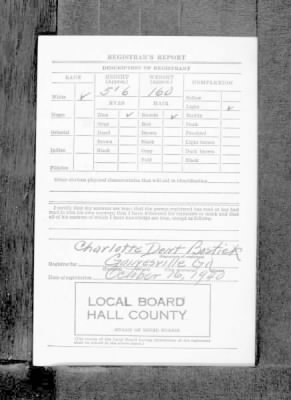 REGISTRAR'S REPORT
DESCRIPTION OF REGISTRANT
RACE HEIGHT (Approx.) WEIGHT (Approx.) COMPLEXION
White ✓ 5'6 160 Sallow
Light ✓
EYES HAIR
Negro Blue ✓ Blonde ✓ Ruddy
Gray Red Dark
Oriental Hazel Brown Freckled
Brown Black Light brown
Indian Black Gray Dark brown
Bald Black
Filipino
Other obvious physical characteristics that will aid in identification
I certify that my answers are true; that the person registered has read or has had
read to him his own answers; that I have witnessed his signature or mark and that
all of his answers of which I have knowledge are true, except as follows:
Charlotte Dent
Registrar for Gainesville Ga
Date of registration October 16, 1940
LOCAL BOARD
HALL COUNTY